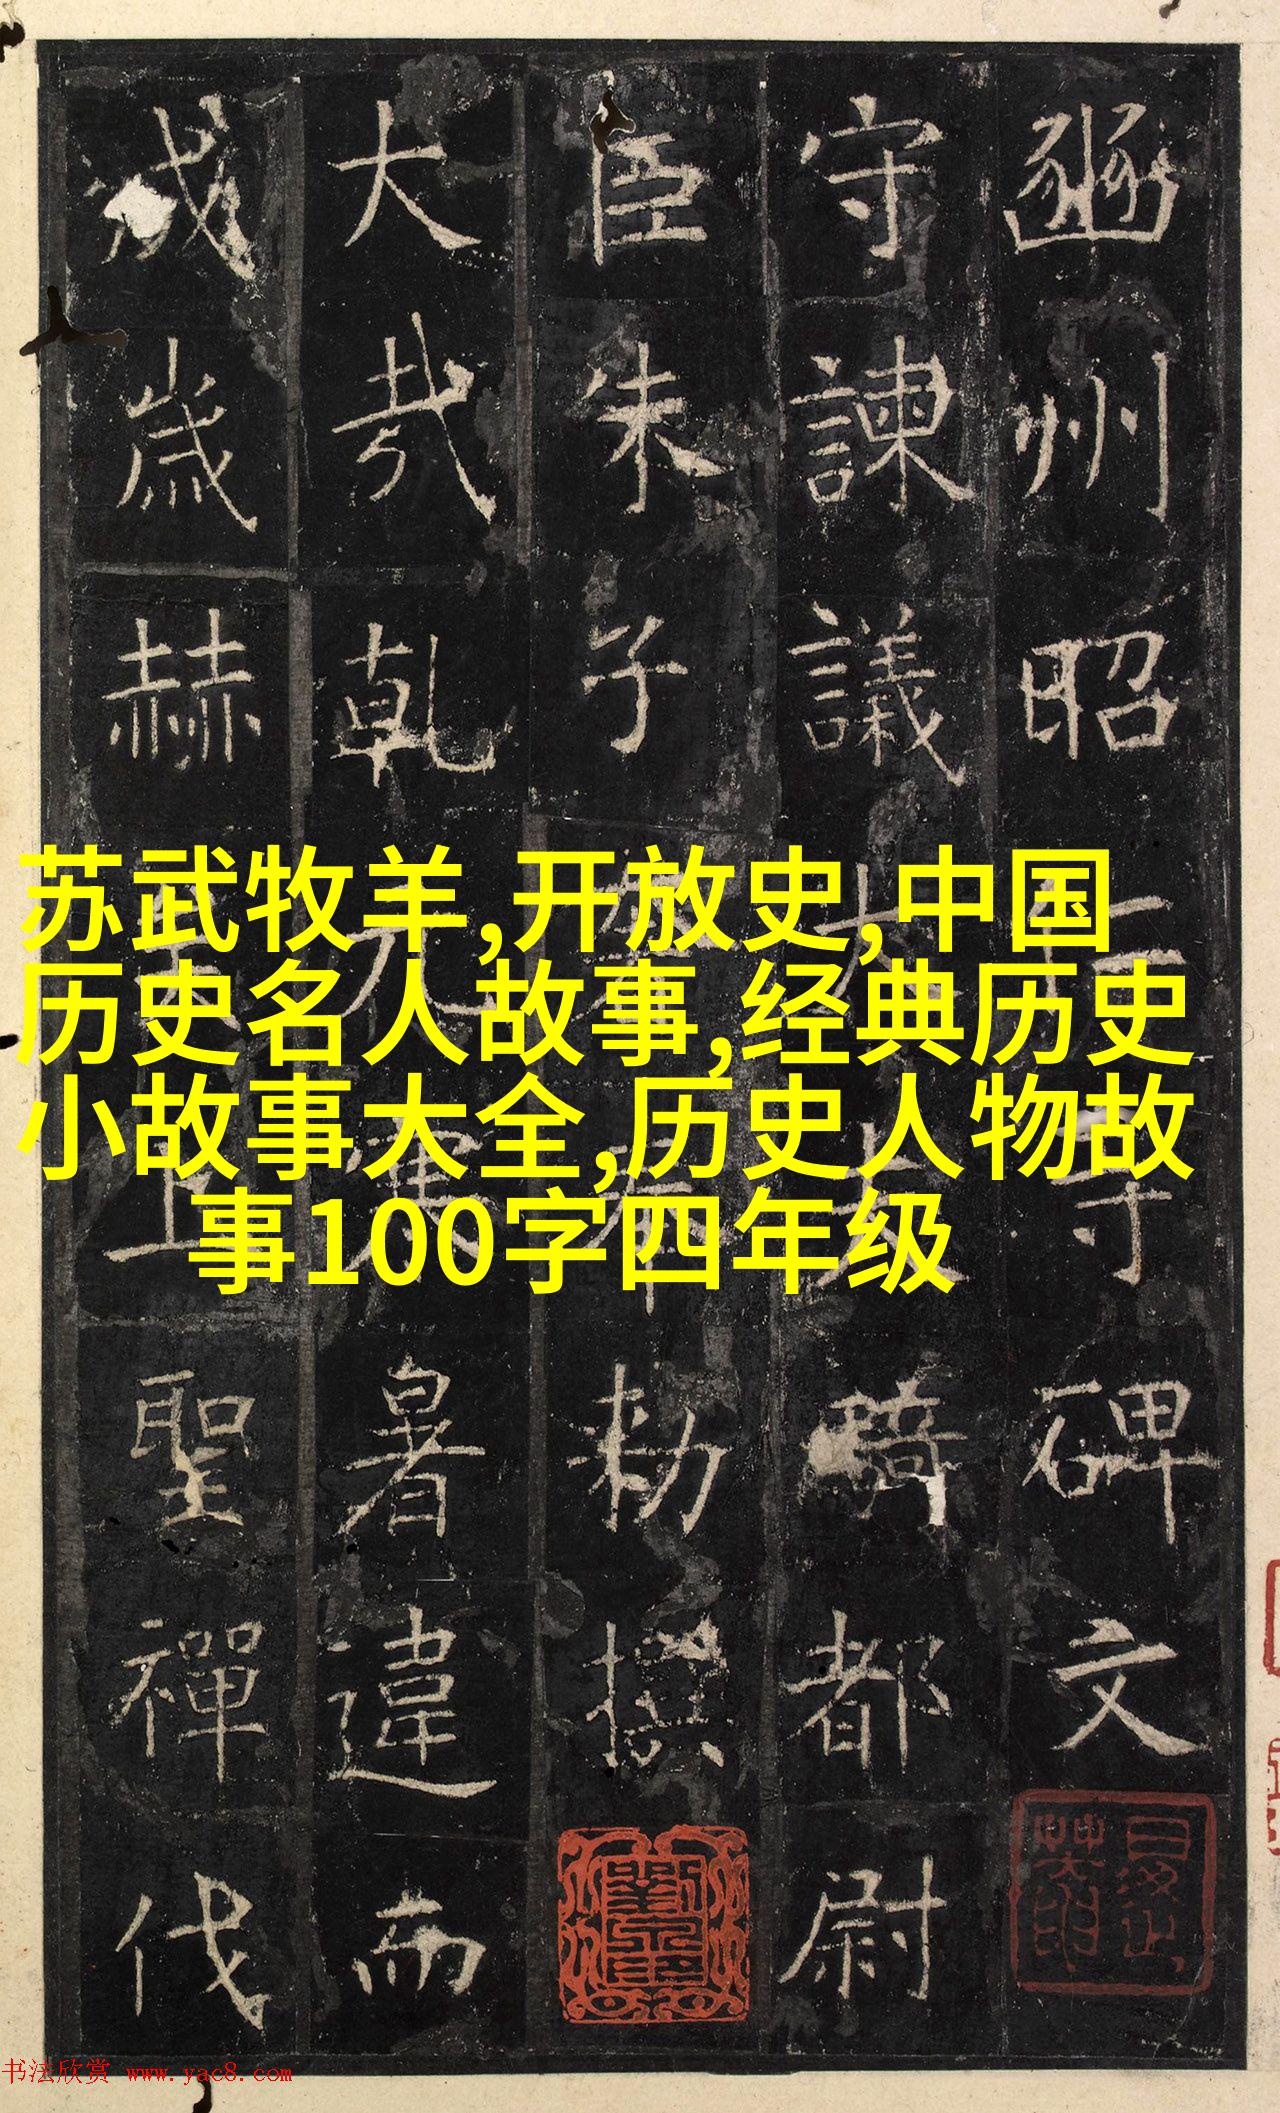 豳州昭仁寺碑文
守諫議大夫騎都尉
臣朱子奢奉勑撰
大哉乾元寒暑違而
成歲赫上聖禪代
苏武牧羊,开放史,中国
历史名人故事,经典历史
小故事大全,历史人物故
事100字四年级
书法欣赏 www.yac8.com